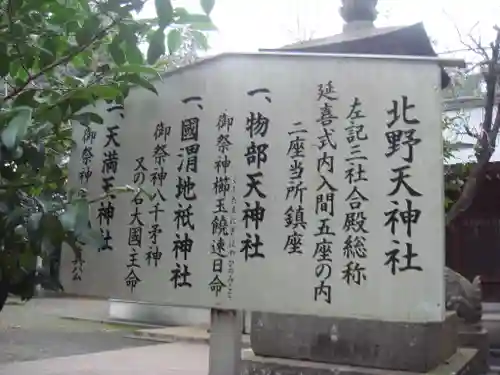 北野天神社
左記三社合殿総称
延喜式内入間五座の内
二座当所鎮座
一、物部天神社
御祭神櫛玉饒速日命
くしたまにぎはやひのみこと
一、國渭地祇神社
御祭神八千矛神
又の名大國主命
一、天満天神社
御祭神
公